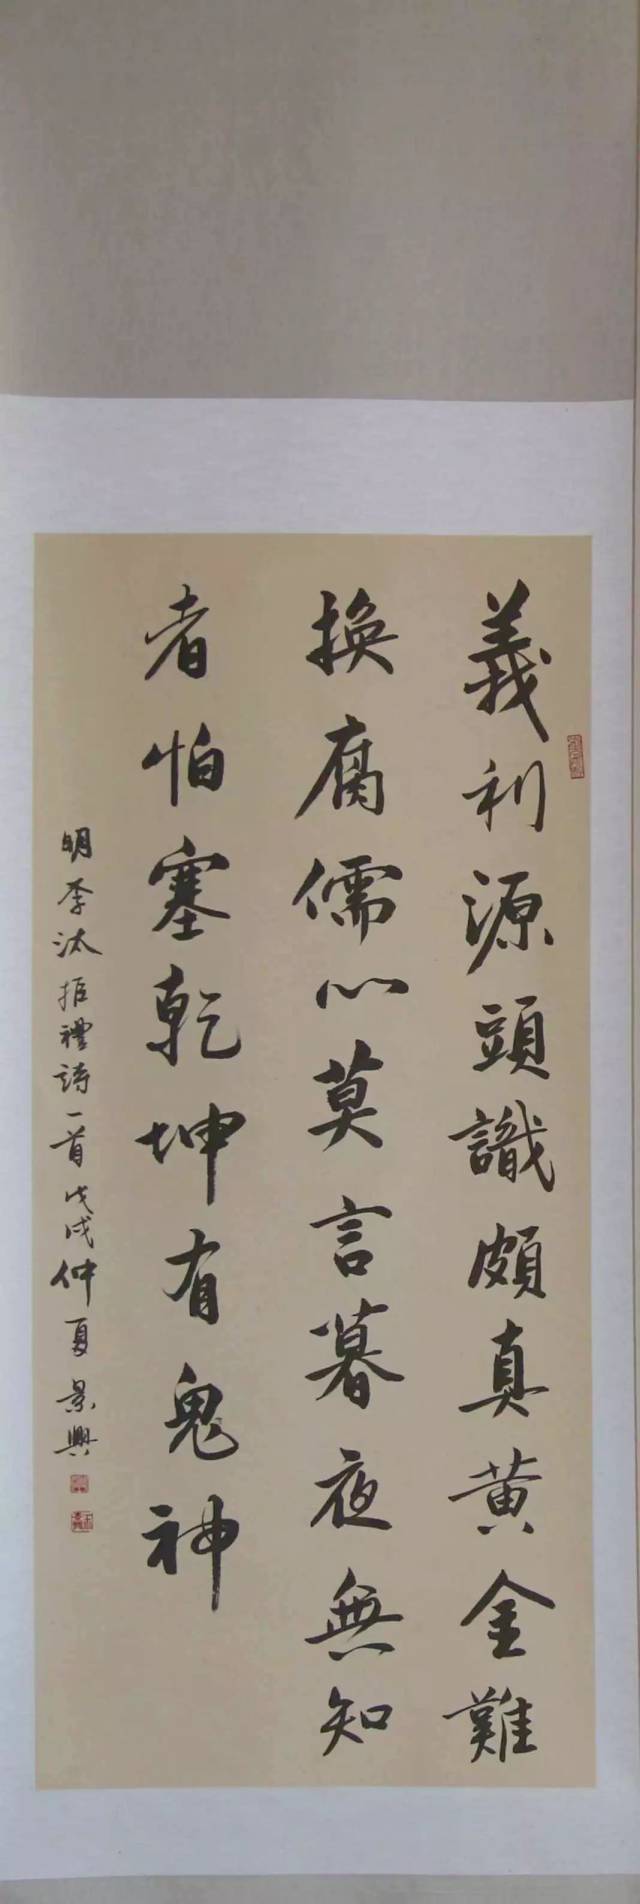 義利源頭識頗真黄金難
換腐儒心莫言暮夜無知
者怕塞乾坤有鬼神
明李汰拒禮詩一首戊戌仲夏景興